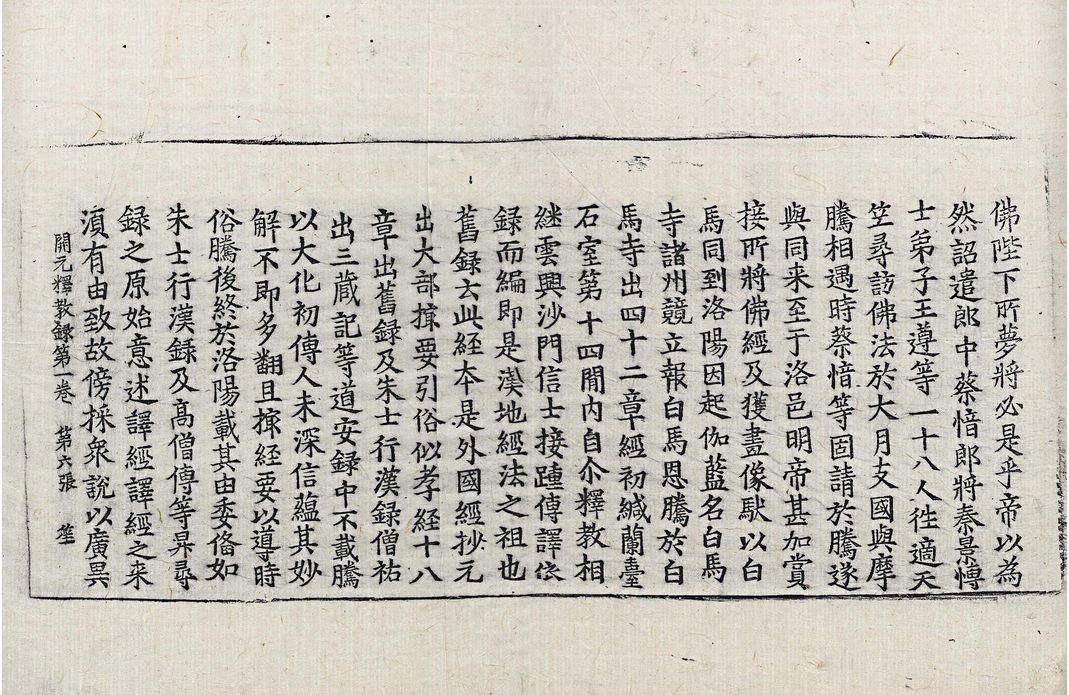 佛陛下所夢將必是乎帝以為
然詔遣郎中蔡愔郎將秦景愽
士弟子王遵等一十八人徃適天
竺尋訪佛法於大月支國與摩
騰相遇時蔡愔等固請於騰遂
與同来至于洛邑明帝甚加賞
接所將佛經及獲畫像馱以白
馬同到洛陽因起伽藍名白馬
寺諸州競立報白馬恩騰於白
馬寺出四十二章經初緘蘭臺
石室第十四閒内自尒釋教相
継雲興沙門信士接踵傳譯依
録而編即是漢地經法之祖也
舊録云此經本是外國經抄元
出大部撮要引俗似孝經十八
章出舊録及朱士行漢録僧祐
出三蔵記等道安録中不載騰
以大化初傳人未深信蘊其妙
解不即多翻且撮經要以導時
俗騰後終於洛陽載其由委俻如
朱士行漢録及髙僧傳等昇尋
録之原始意述譯經譯經之来
湏有由致故傍採衆說以廣異
開元釋教録第一卷 第六張 𦭘